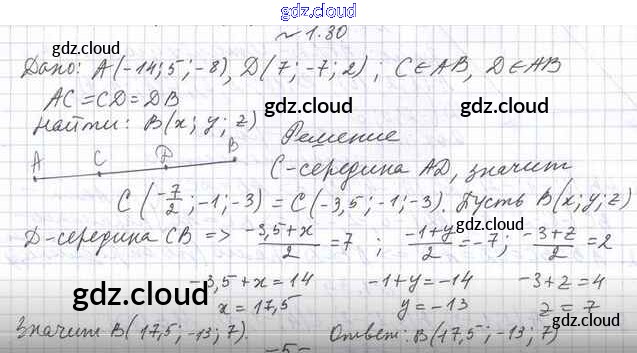 gdz.cloud
№ 1.30
Дано: A(-14; 5; -8), D(7; -7; 2); C∈AB, D∈AB
AC = CD = DB
Найти: B(x; y; z)
Решение
A C D B
C-середина AD, значит
C(-7/2; -1; -3) = C(-3,5; -1; -3). Пусть B(x; y; z)
D-середина CB => (-3,5+x)/2 = 7; (-1+y)/2 = -7; (-3+z)/2 = 2
-3,5+x = 14 -1+y = -14 -3+z = 4
x = 17,5 y = -13 z = 7
Значит B(17,5; -13; 7). Ответ: B(17,5; -13; 7)
-5-
gdz.cloud
gdz.cloud
gdz.cloud
gdz.cloud
gdz.cloud
gdz.cloud
gdz.cloud